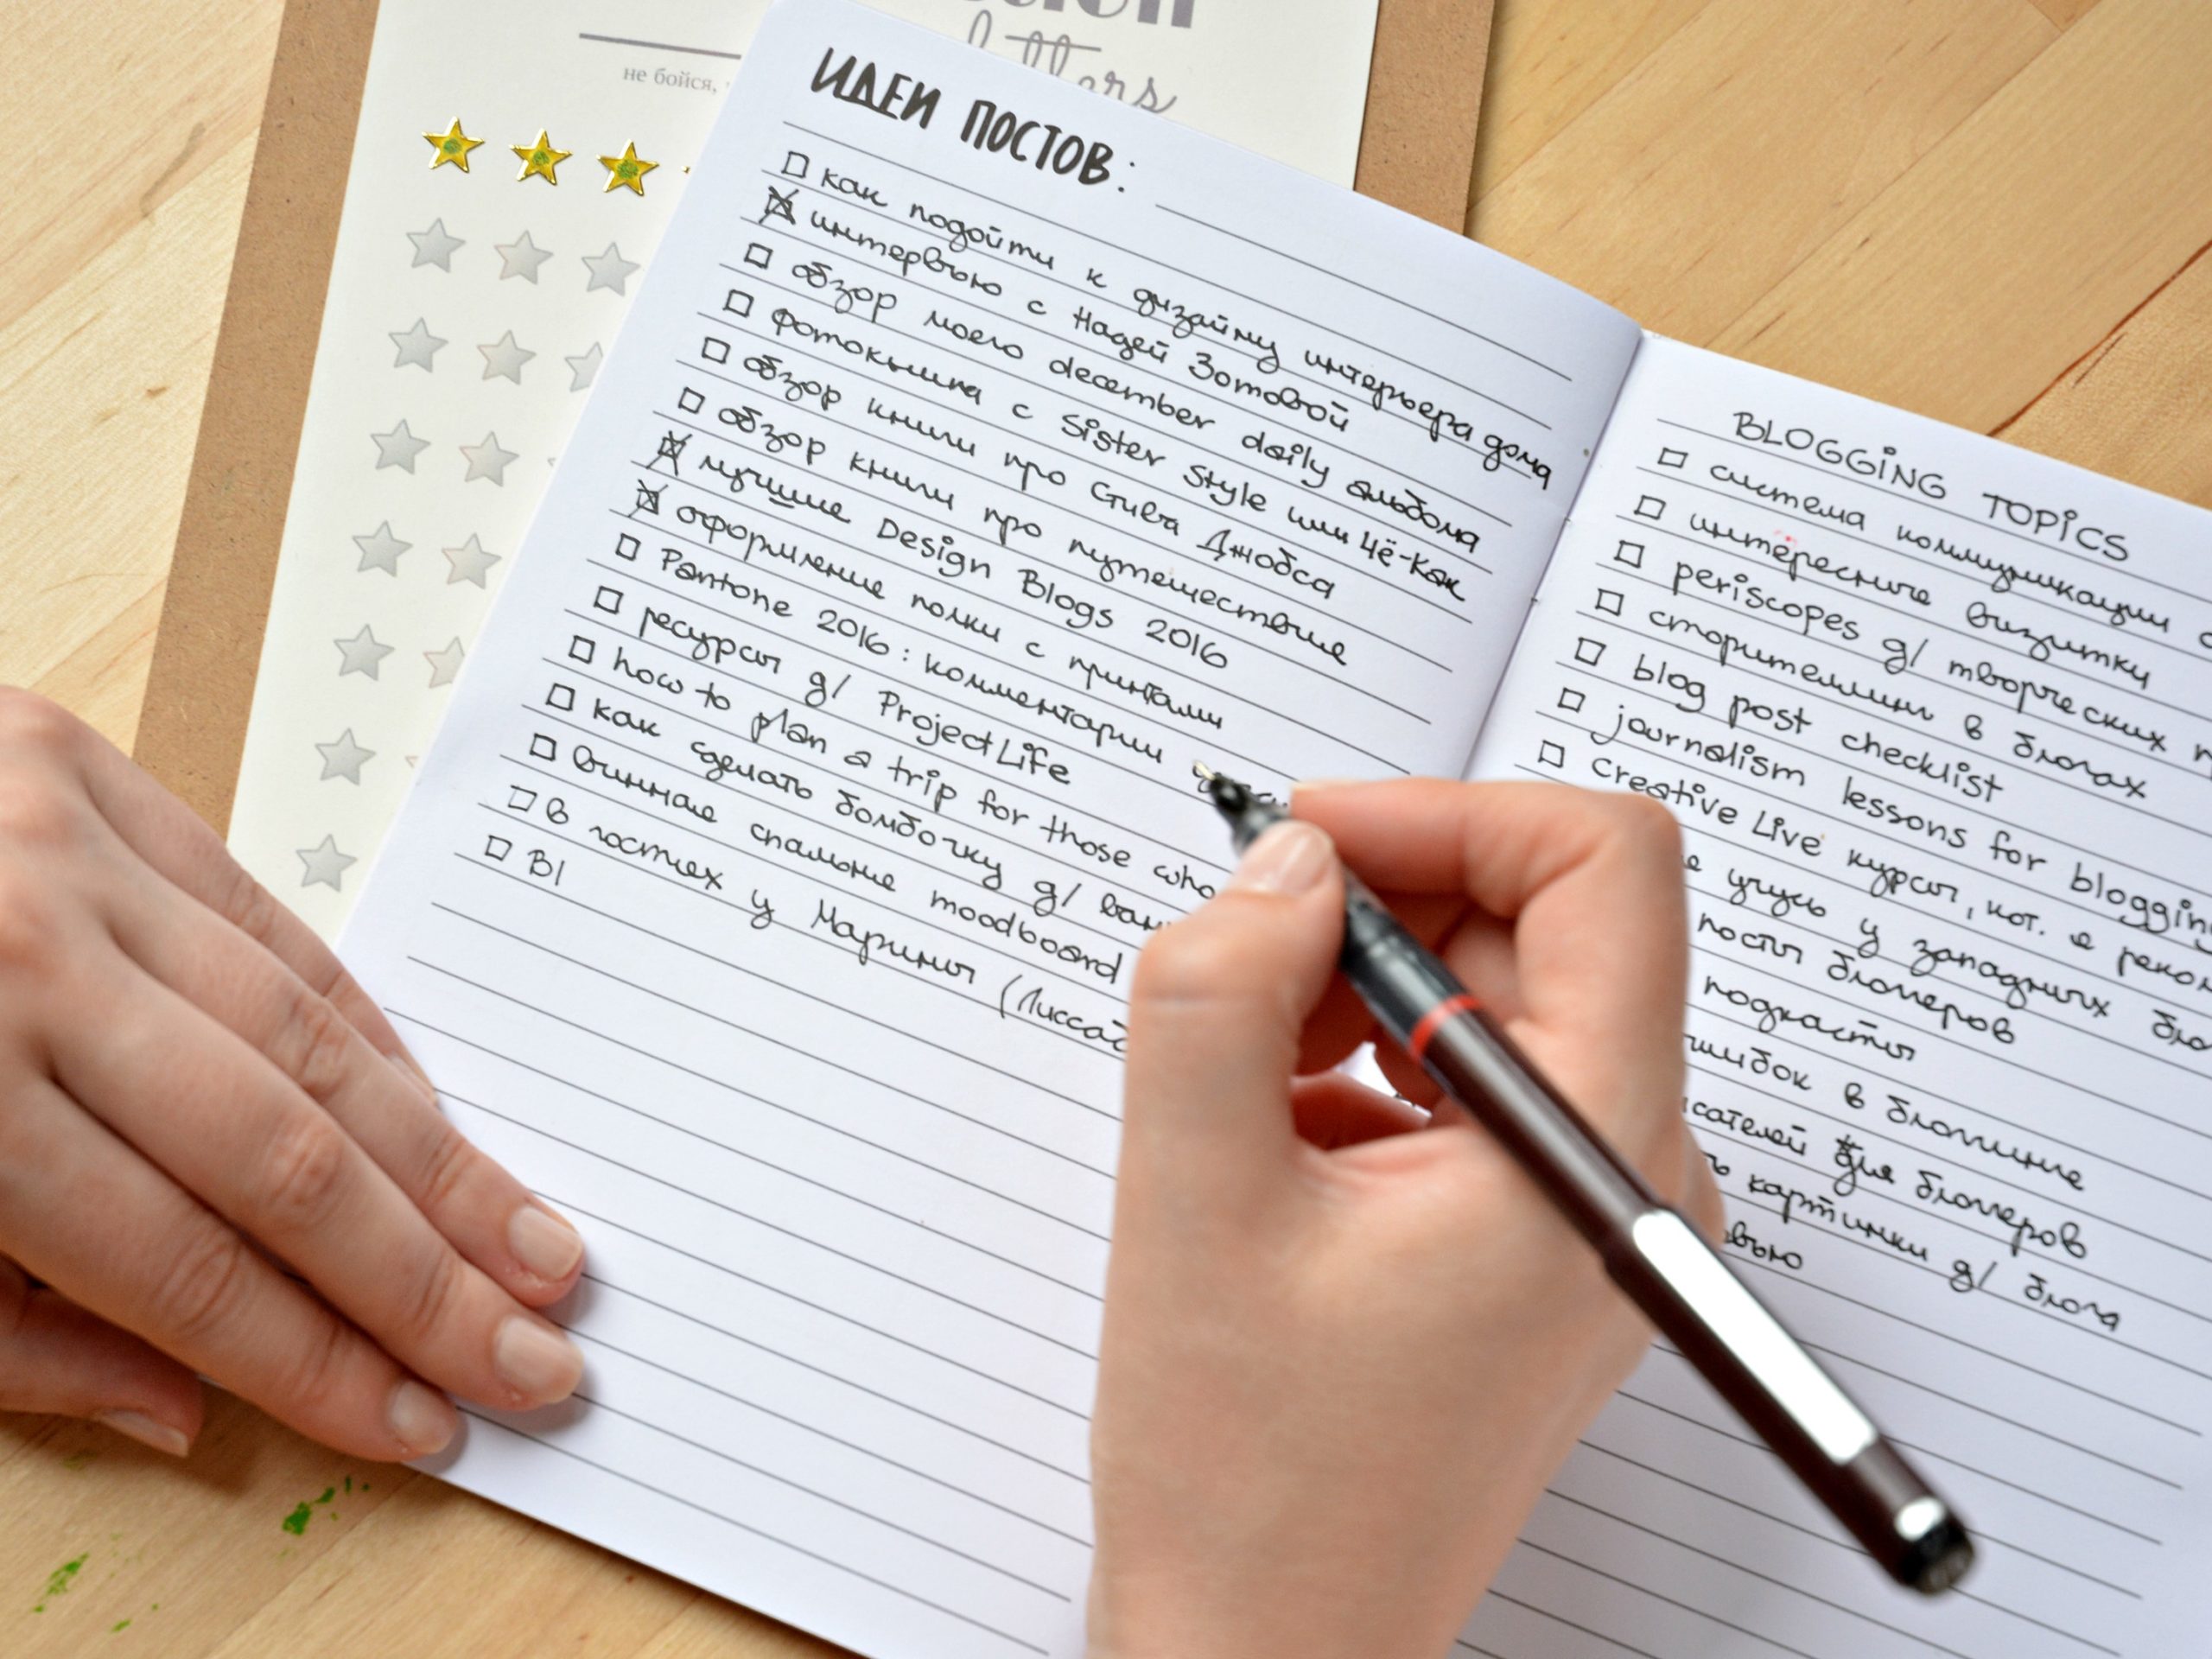 letters
не бойся,
ИДЕИ ПОСТОВ:
как подойти к дизайну интерьера дома
интервью с Надей Зотовой
обзор моего december daily альбома
фотокнига с Sister Style или Чё-Как
обзор книги про Стива Джобса
обзор книги про путешествие
лучшие Design Blogs 2016
оформление полки с принтами
Pantone 2016: комментарии
ресурсы д/ Project Life
how to plan a trip for those who
как сделать бомбочку д/
винные спальные moodboard
в гостях у Марины
BLOGGING TOPICS
система коммуникации
интересные визитки
periscopes д/ творческих
сторителлинг в блогах
blog post checklist
journalism lessons for blogging
Creative Live курсы, кот. я
учусь у западных
посты блогеров
подкасты
в блоггинге
для блогеров
картинки д/ блога